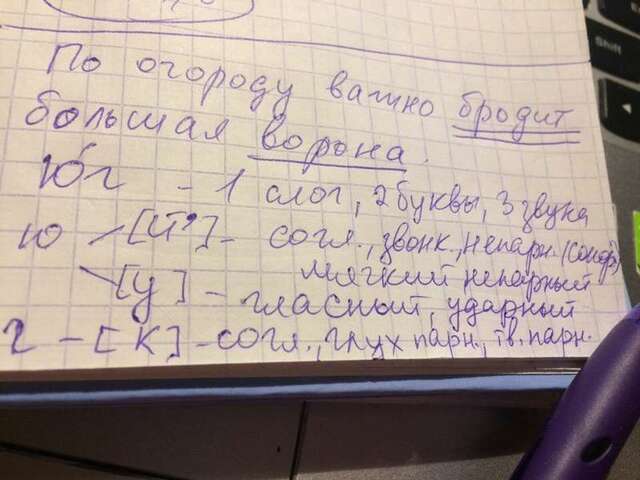 По огороду важно бродит
большая ворона.
Юг - 1 слог, 2 буквы, 3 звука
ю [й'] - согл., звонк., непарн. (сонор)
мягкий непарный
[у] - гласный, ударный
г - [к] - согл., глух парн., тв. парн.